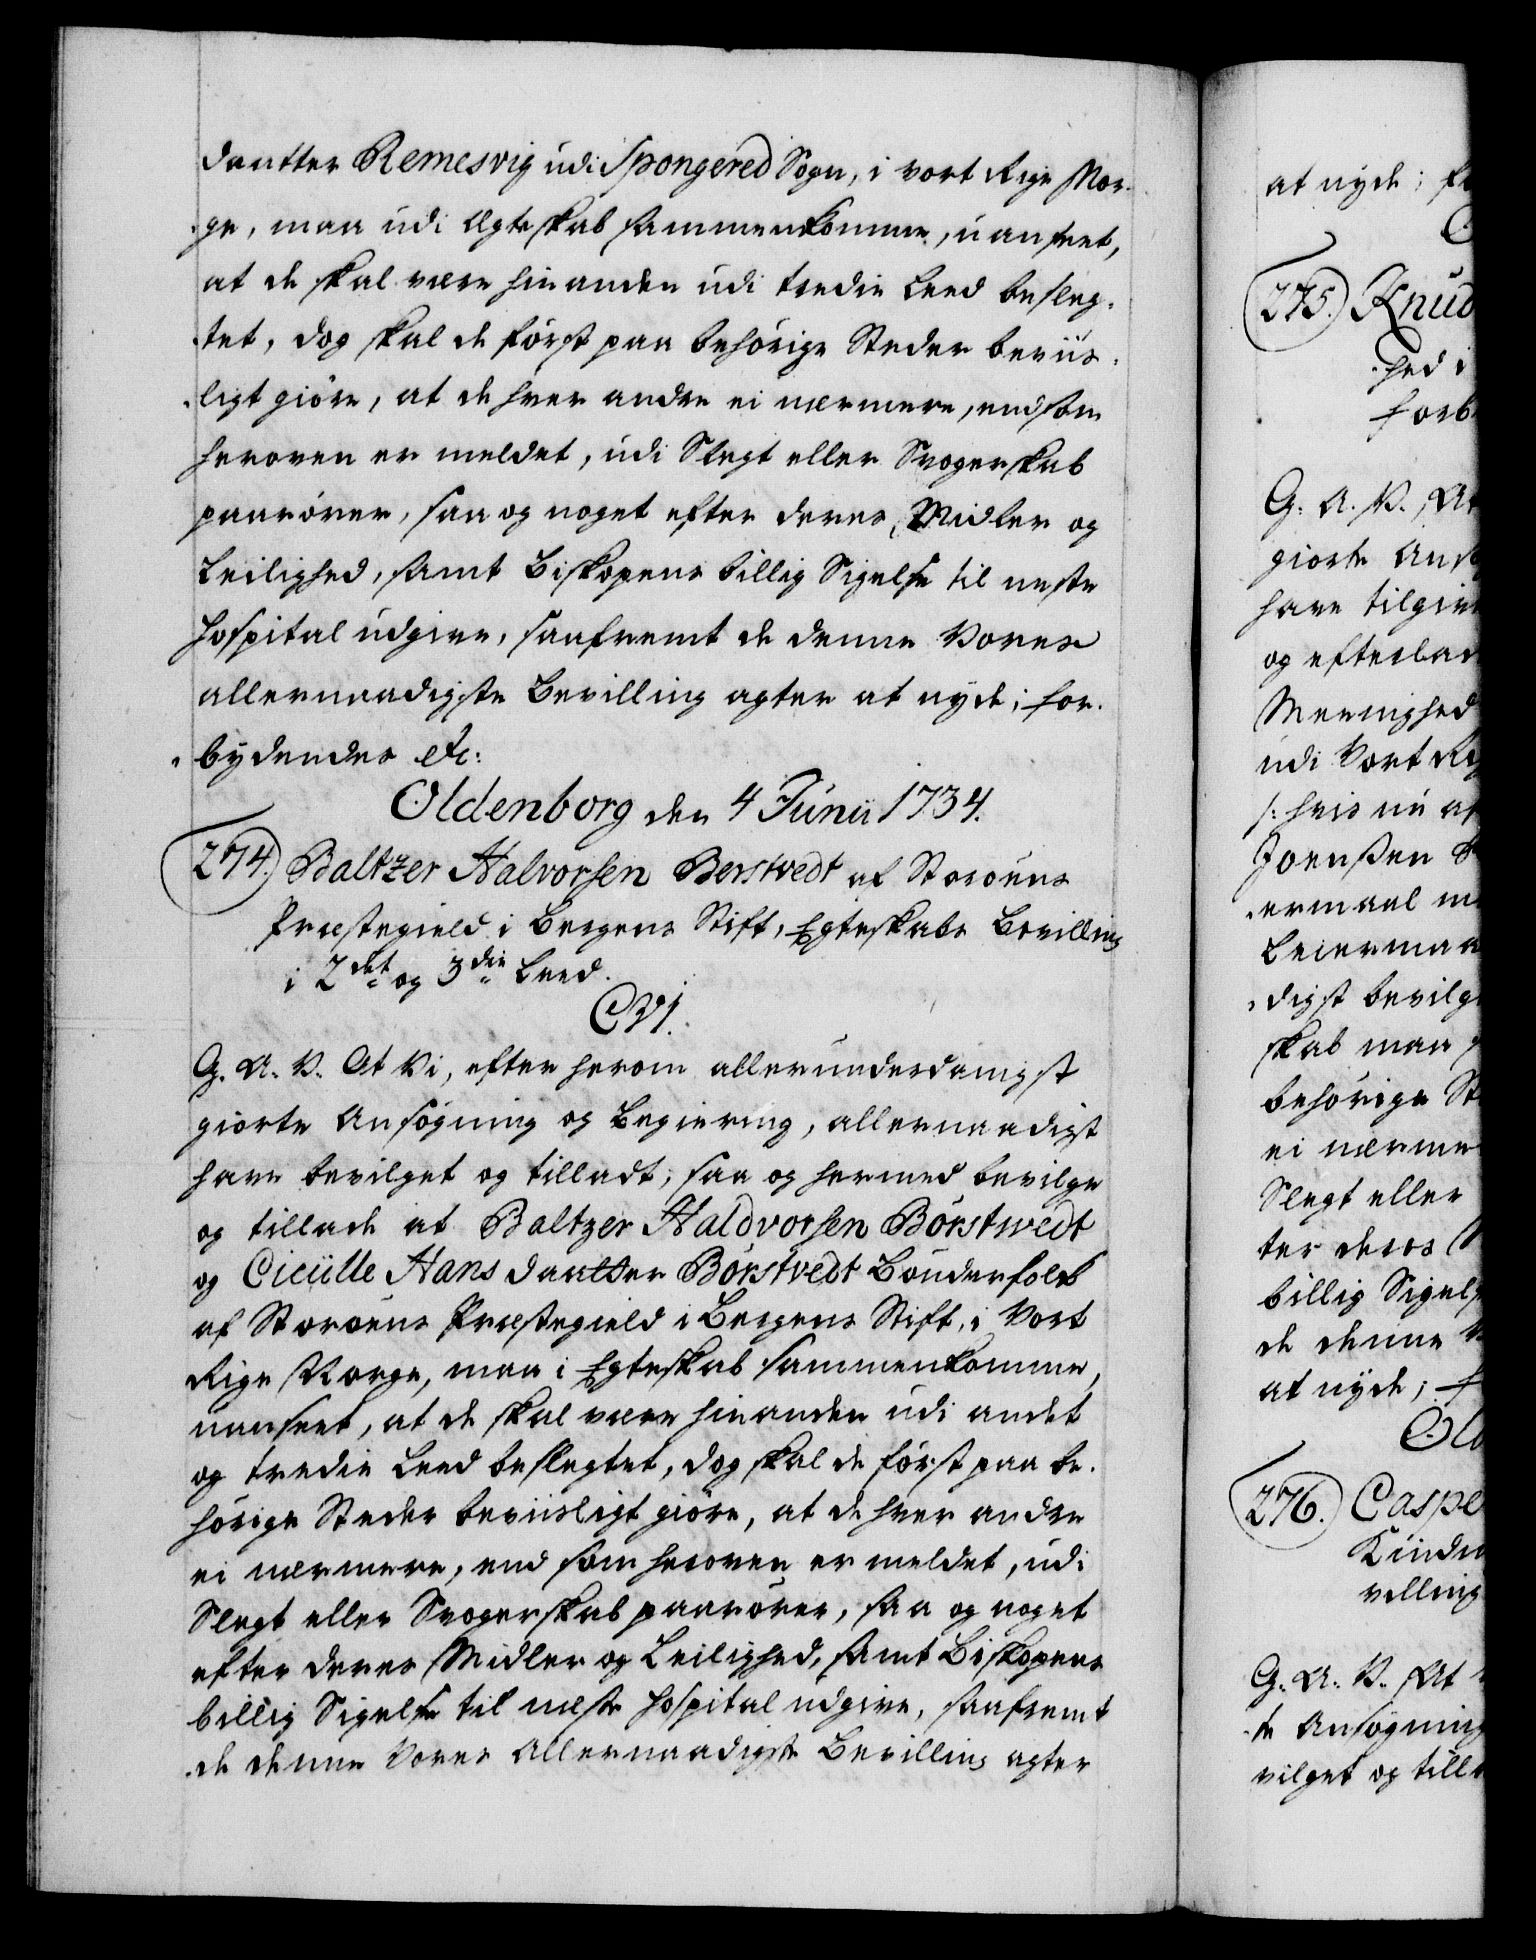 daatter Remesvig udi Spongered Sogn, i vort Rige Nor-
ge, maa udi Ægteskab sammenkomme, uanseet,
at de skal være hinanden udi tredie Leed besleg-
tet, dog skal de först paa behörige Steder beviis-
ligt giöre, at de hver andre ei nærmere, end som
heroven er meldet, udi Slegt eller Svogerskab
paarörer, saa og noget efter deres Midler og
Leilighed, samt Biskopens billig Sigelse til neste
Hospital udgive, saafremt de denne Vores
allernaadigste Bevilling agter at nyde; for-
bydendes etc:
Oldenborg den 4 Junii 1734.
274. Baltzer Halvorsen Berstvedt af Storöens
Præstegield i Bergens Stift, Egteskabs Bevilling
i 2det og 3die Leed.
CVI.
G. A. V. At Vi, efter herom allerunderdanigst
giorte Ansögning og Begiering, allernaadigst
have bevilget og tilladt; saa og hermed bevilge
og tillade at Baltzer Haldvorsen Börstwedt
og Cicülle Hans daatter Börstvedt Bönderfolck
af Storöens Præstegield i Bergens Stift, i Vort
Rige Norge, maa i Egteskab sammenkomme,
uanseet, at de skal være hinanden udi andet
og tredie Leed beslegtet, dog skal de först paa be-
hörige Steder beviisligt giöre, at de hver andre
ei nærmere, end som heroven er meldet, udi
Slegt eller Svogerskab paarörer, saa og noget
efter deres Midler og Leilighed, samt Biskopens
billig Sigelse til neste Hospital udgive, saafremt
de denne Vores Allernaadigste Bevilling agter
at nyde;
275. Knud
hed i
G. A. V. At
giorte
have
og
Meenighed
udi Vort
/: hvis nu
Joensen
ermaal
Leiermaa
digst
skab maa
behörige
ei
Slegt eller
ter deres
billig
de denne
at nyde;
276.
villing
G. A. V. At
te Ansögning
vilget og